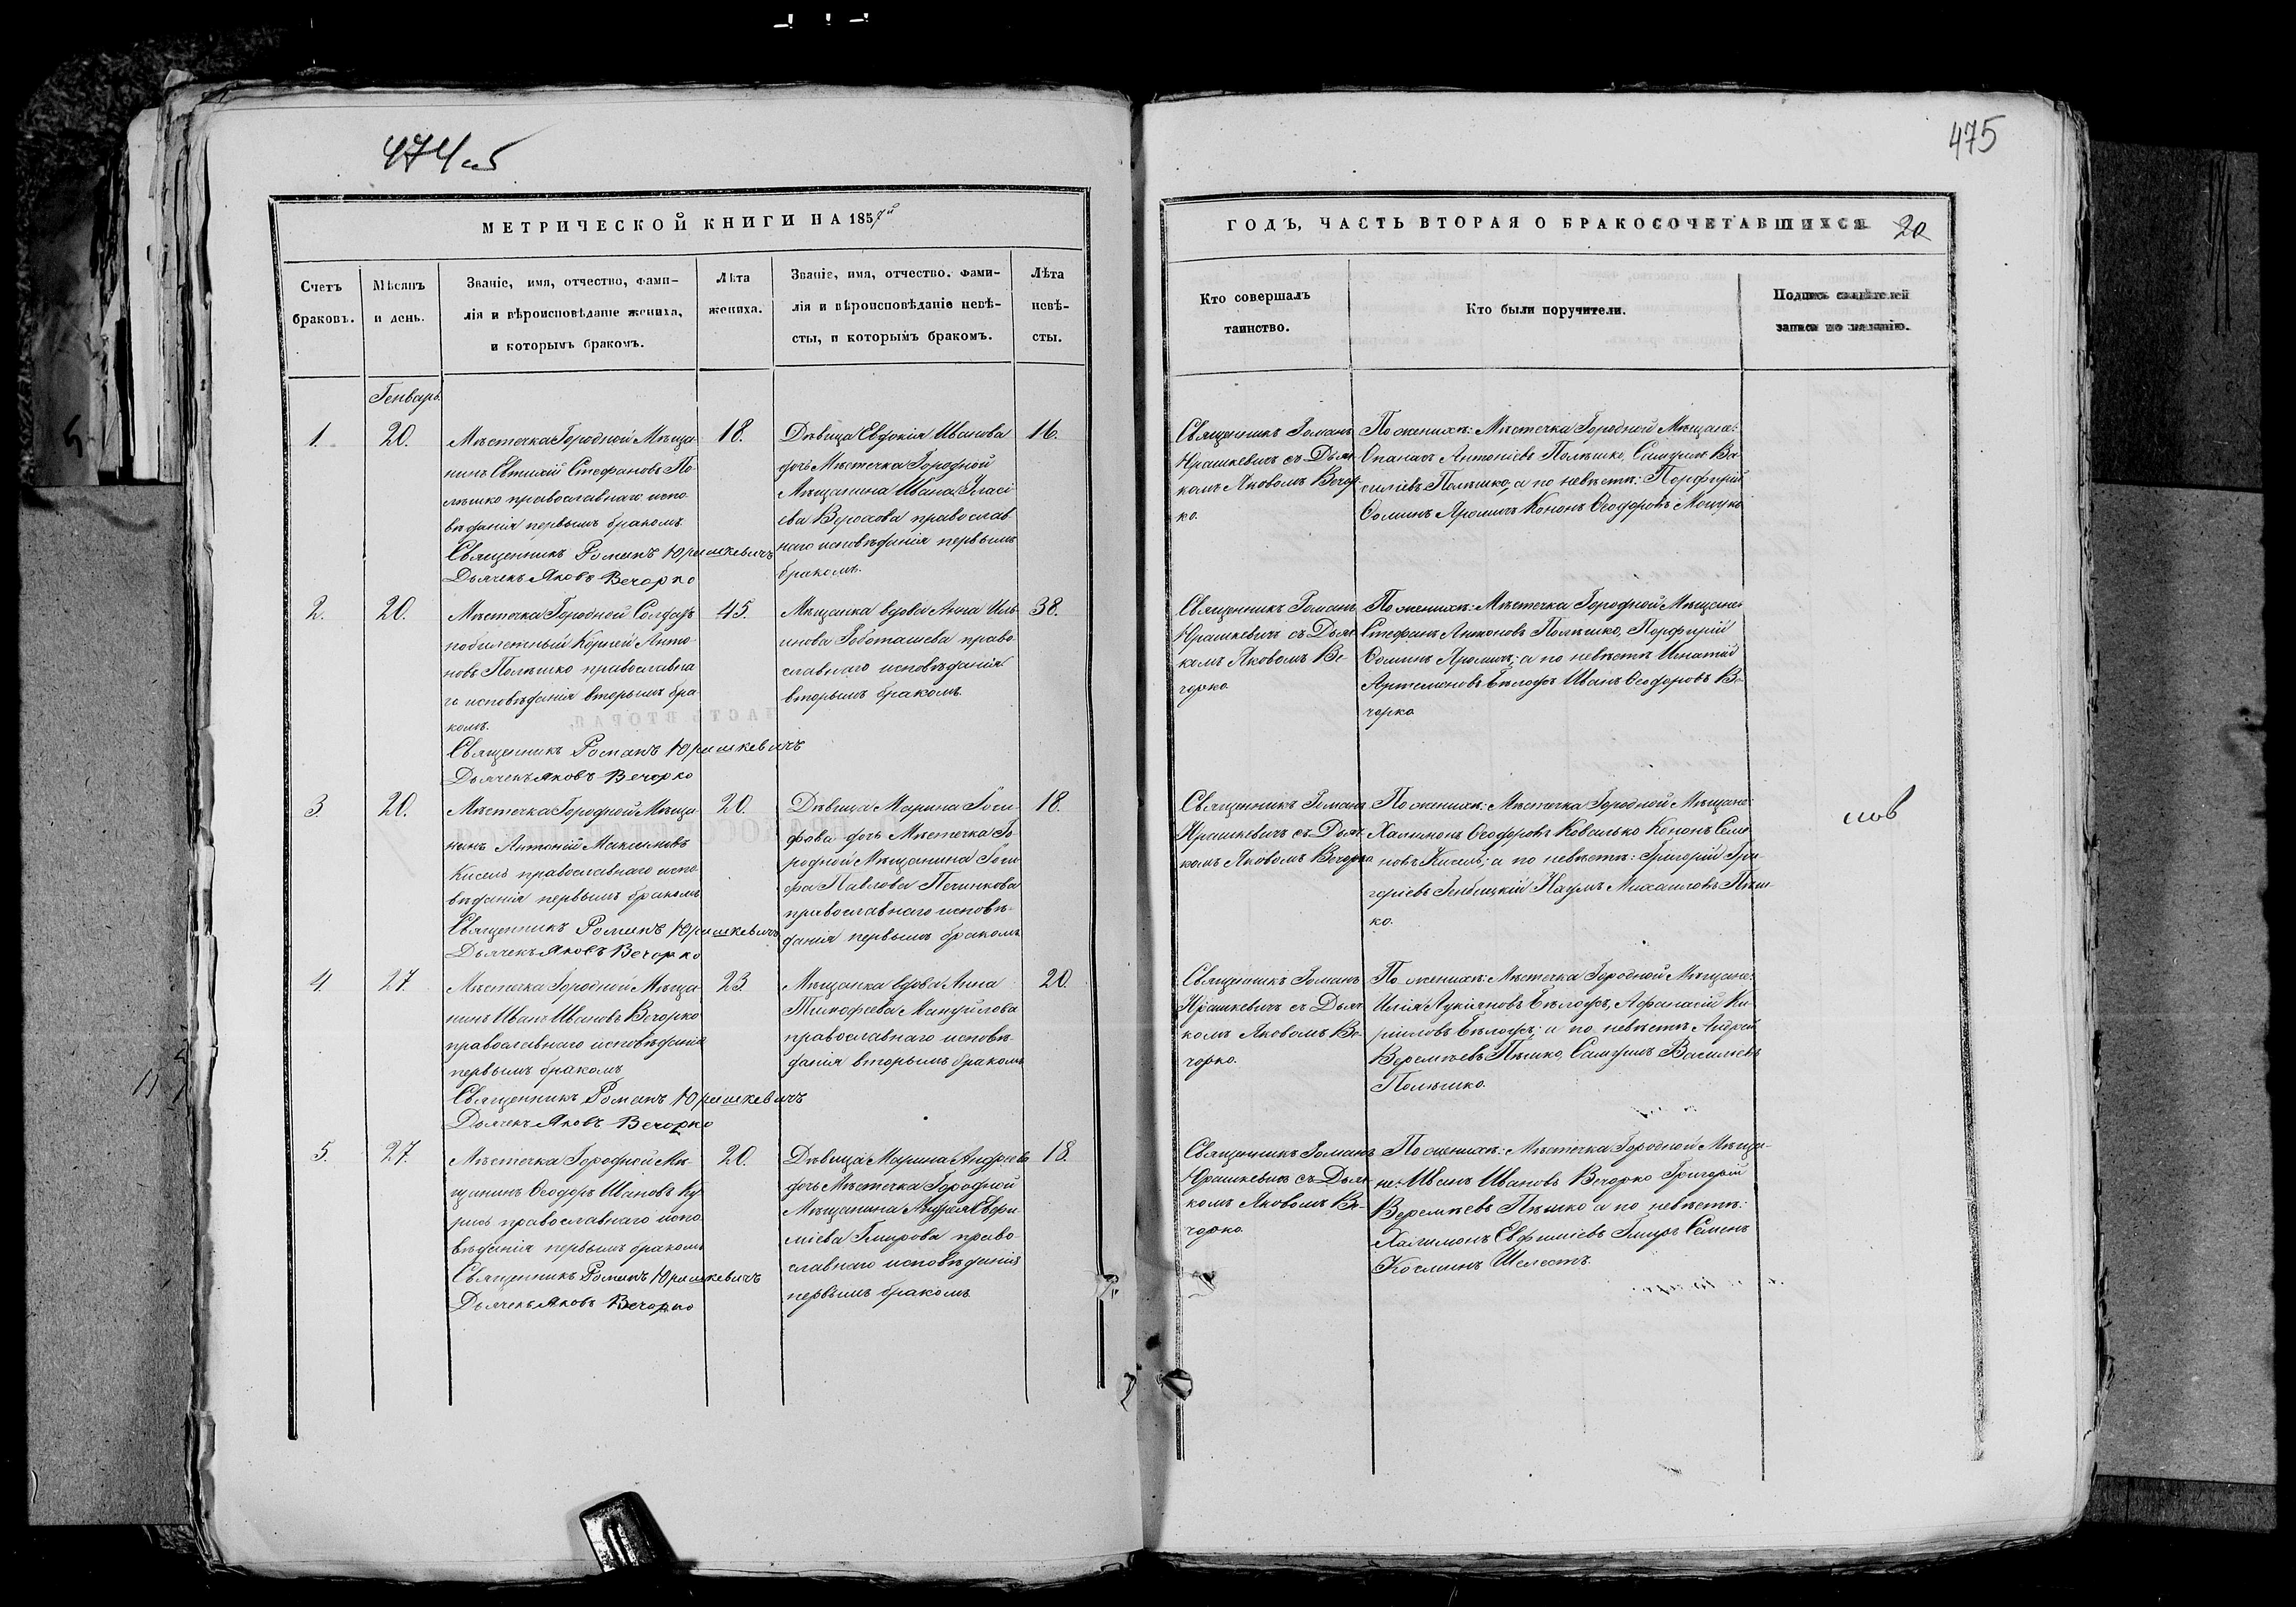 474 об
475
МЕТРИЧЕСКОЙ КНИГИ НА 1857й
ГОДЪ, ЧАСТЬ ВТОРАЯ О БРАКОСОЧЕТАВШИХСЯ
20
Счетъ браковъ.
Мѣсяцъ и день.
Званіе, имя, отчество, фами-
лія и вѣроисповѣданіе жениха,
и которымъ бракомъ.
Лѣта
жениха.
Званіе, имя, отчество, фами-
лія и вѣроисповѣданіе невѣ-
сты, и которымъ бракомъ.
Лѣта
невѣ-
сты.
Кто совершалъ
таинство.
Кто были поручители.
Подпись свидѣтелей
записи по желанію.
Генварь.
1.
20.
Мѣстечка Городной Мѣща
нинъ Евтихій Стефановъ По
лѣшко православнаго испо
вѣданія первымъ бракомъ
Священникъ Романъ Юрашкевичъ
Дьячекъ Яковъ Вечорко
18.
Дѣвица Евдокія Иванова
дочь Мѣстечка Городной
Мѣщанина Ивана
православ
наго исповѣданія первымъ
бракомъ.
16.
Священникъ Романъ
Юрашкевичъ съ Дьяч
комъ Яковомъ Вечор
ко.
По женихѣ: Мѣстечка Городной Мѣщане:
Опанасъ Антоніевъ Полѣшко, Самуилъ Ва
силіевъ Полѣшко, а по невѣстѣ: Порфирій
Ѳоминъ Яромичъ Кононъ Ѳеодоровъ
2.
20.
Мѣстечка Городной Солдатъ
побилетный Корней Анто
новъ Полѣшко православна
го исповѣданія вторымъ бра
комъ.
Священникъ Романъ Юрашкевичъ
Дьячекъ Яковъ Вечорко
45.
Мѣщанка вдова Анна Иль
инова право
славнаго исповѣданія
вторымъ бракомъ
38.
Священникъ Романъ
Юрашкевичъ съ Дьяч
комъ Яковомъ Ве-
чорко
По женихѣ: Мѣстечка Городной Мѣщане:
Стефанъ Антоновъ Полѣшко, Порфирій
Ѳоминъ Яромичъ; а по невѣстѣ Игнатій
Артемоновъ Бѣлоусъ Иванъ Ѳеодоровъ Ве-
чорко
3.
20.
Мѣстечка Городной Мѣща
нинъ Антоній Максимовъ
Кисель православнаго испо
вѣданія первымъ бракомъ
Священникъ Романъ Юрашкевичъ
Дьячекъ Яковъ Вечорко
20.
Дѣвица Марина Іоси
фова дочь Мѣстечка Го
родной Мѣщанина Іоси
фа Павлова Печинкова
православнаго исповѣ-
данія первымъ бракомъ
18.
Священникъ Романъ
Юрашкевичъ съ Дьяч
комъ Яковомъ Вечорко
По женихѣ: Мѣстечка Городной Мѣщане:
Халимонъ Ѳеодоровъ Ковалько Кононъ Семе
новъ Кисель; а по невѣстѣ: Григорій Гри-
горіевъ Наумъ Михаиловъ Пѣш-
ко.
слов
4.
27.
Мѣстечка Городной Мѣща
нинъ Иванъ Ивановъ Вечорко
православнаго исповѣданія
первымъ бракомъ
Священникъ Романъ Юрашкевичъ
Дьячекъ Яковъ Вечорко
23
Мѣщанка вдова Анна
Тимофеева Мануйлова
православнаго исповѣ-
данія вторымъ бракомъ
20.
Священникъ Романъ
Юрашкевичъ съ Дьяч
комъ Яковомъ Ве-
чорко.
По женихѣ: Мѣстечка Городной Мѣщане:
Илія Лукіяновъ Бѣлоусъ, Афанасій Ки-
риловъ Бѣлоусъ; а по невѣстѣ Андрей
Веремѣевъ Пѣшко, Самуилъ Василіевъ
Полѣшко.
5.
27.
Мѣстечка Городной Мѣ-
щанинъ Ѳеодоръ Ивановъ Ку
рисъ православнаго испо
вѣданія первымъ бракомъ
Священникъ Романъ Юрашкевичъ
Дьячекъ Яковъ Вечорко
20.
Дѣвица Марина Андреева
дочь Мѣстечка Городной
Мѣщанина Андрея Евфи
міева Гмирова право
славнаго исповѣданія
первымъ бракомъ
18.
Священникъ Романъ
Юрашкевичъ съ Дьяч
комъ Яковомъ Ве-
чорко.
По женихѣ: Мѣстечка Городной Мѣща-
не: Иванъ Ивановъ Вечорко Григорій
Веремѣевъ Пѣшко а по невѣстѣ:
Халимонъ Евфиміевъ Гмиръ Семенъ
Косминъ Шелестъ.